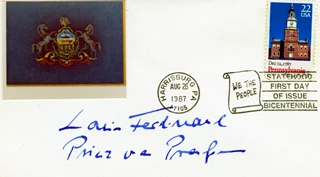 22
USA
Dec 12, 1787
Pennsylvania
HARRISBURG PA
AUG 26
1987
17105
WE THE
PEOPLE
STATEHOOD
FIRST DAY
OF ISSUE
BICENTENNIAL
Louis Ferdinand
Prinz von Preußen